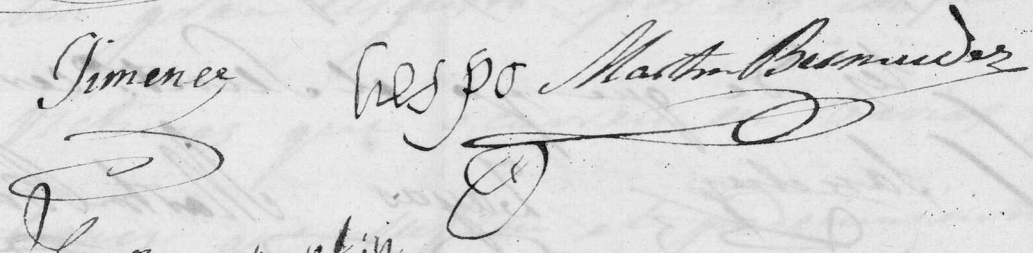 Jimenez Crespo Martin Bermudez